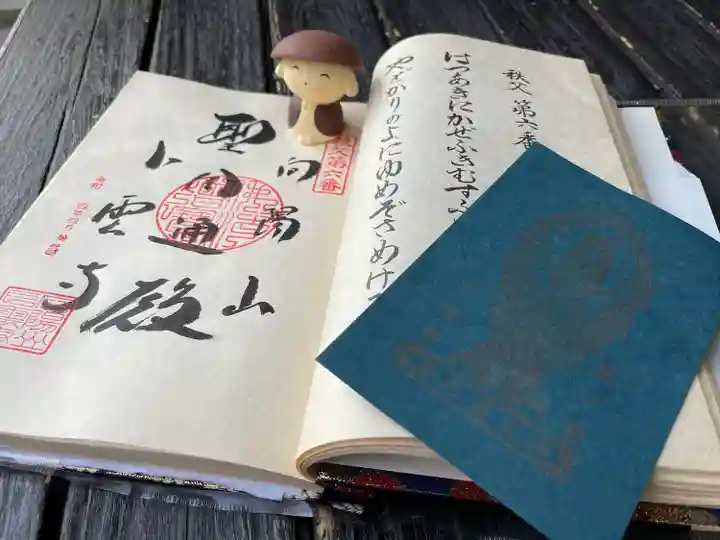 秩父 第六番
はつあきにかぜふきむす
やどかりのよにゆめぞさめけ
秩父第六番
向陽山
聖円通殿
卜雲寺